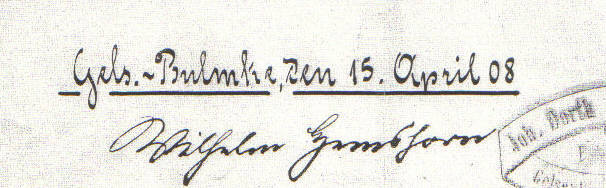 Gels.-Bulmke, den 15. April 08
Wilhelm Hemshorn
Joh. Dorth
Gelsen